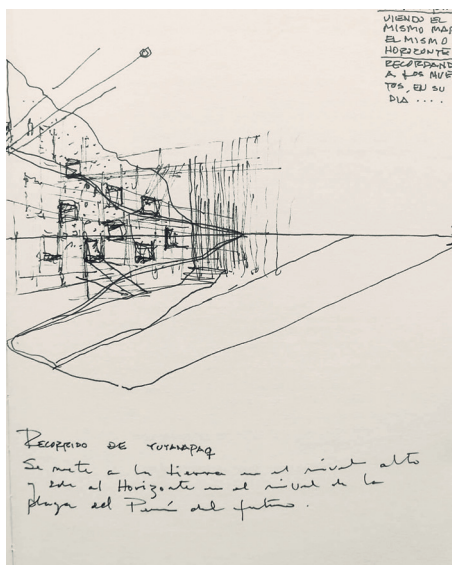 VIENDO EL
MISMO MAR
EL MISMO
HORIZONTE
RECORDAND
A LOS MUER
TOS, EN SU
DIA ....
RECORRIDO DE YUYANAPAQ
Se mete a la tierra en el nivel alto
y sale al Horizonte en el nivel de la
plaza del Perú del futuro.